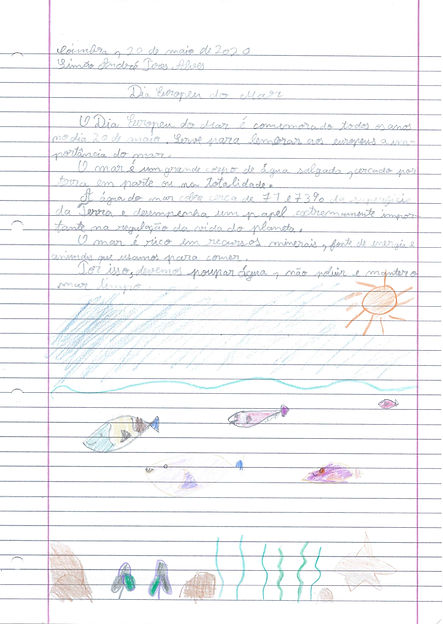 Coimbra, 20 de maio de 2020
Simão André Pais Alves
Dia Europeu do Mar
O Dia Europeu do Mar é comemorado todos os anos
no dia 20 de maio. Serve para lembrar aos europeus a im
portância do mar.
O mar é um grande corpo de água salgada, cercado por
terra em parte ou na totalidade.
A água do mar cobre cerca de 71 e 73% da superfície
da Terra e desempenha um papel extremamente impor
tante na regulação da vida do planeta.
O mar é rico em recursos minerais, fonte de energia e
animais que usamos para comer.
Por isso, devemos poupar água, não poluir e manter o
mar limpo.